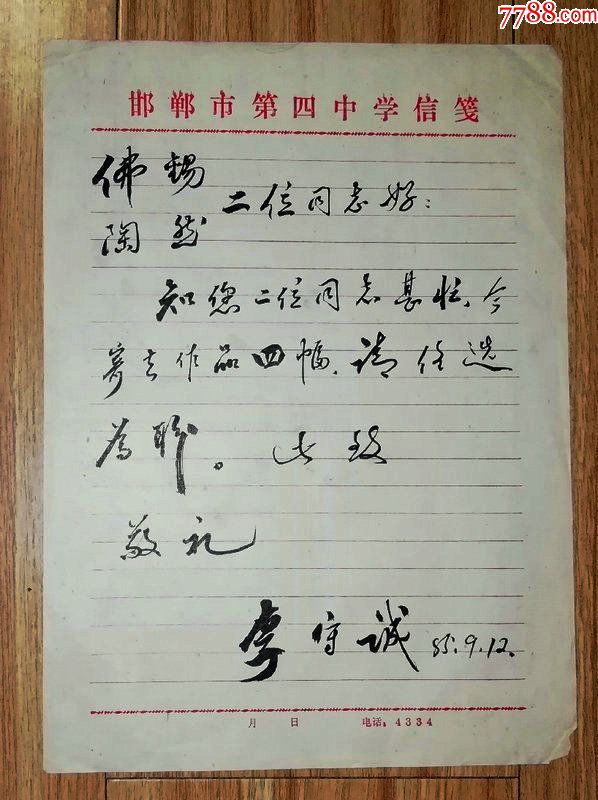 7788.com
邯郸市第四中学信笺
佛锡
陶然
二位同志好：
知您二位同志甚忙、今
寄去作品四幅、请任选
为盼。 此致
敬礼
李守诚 85.9.12.
月 日 电话：4334